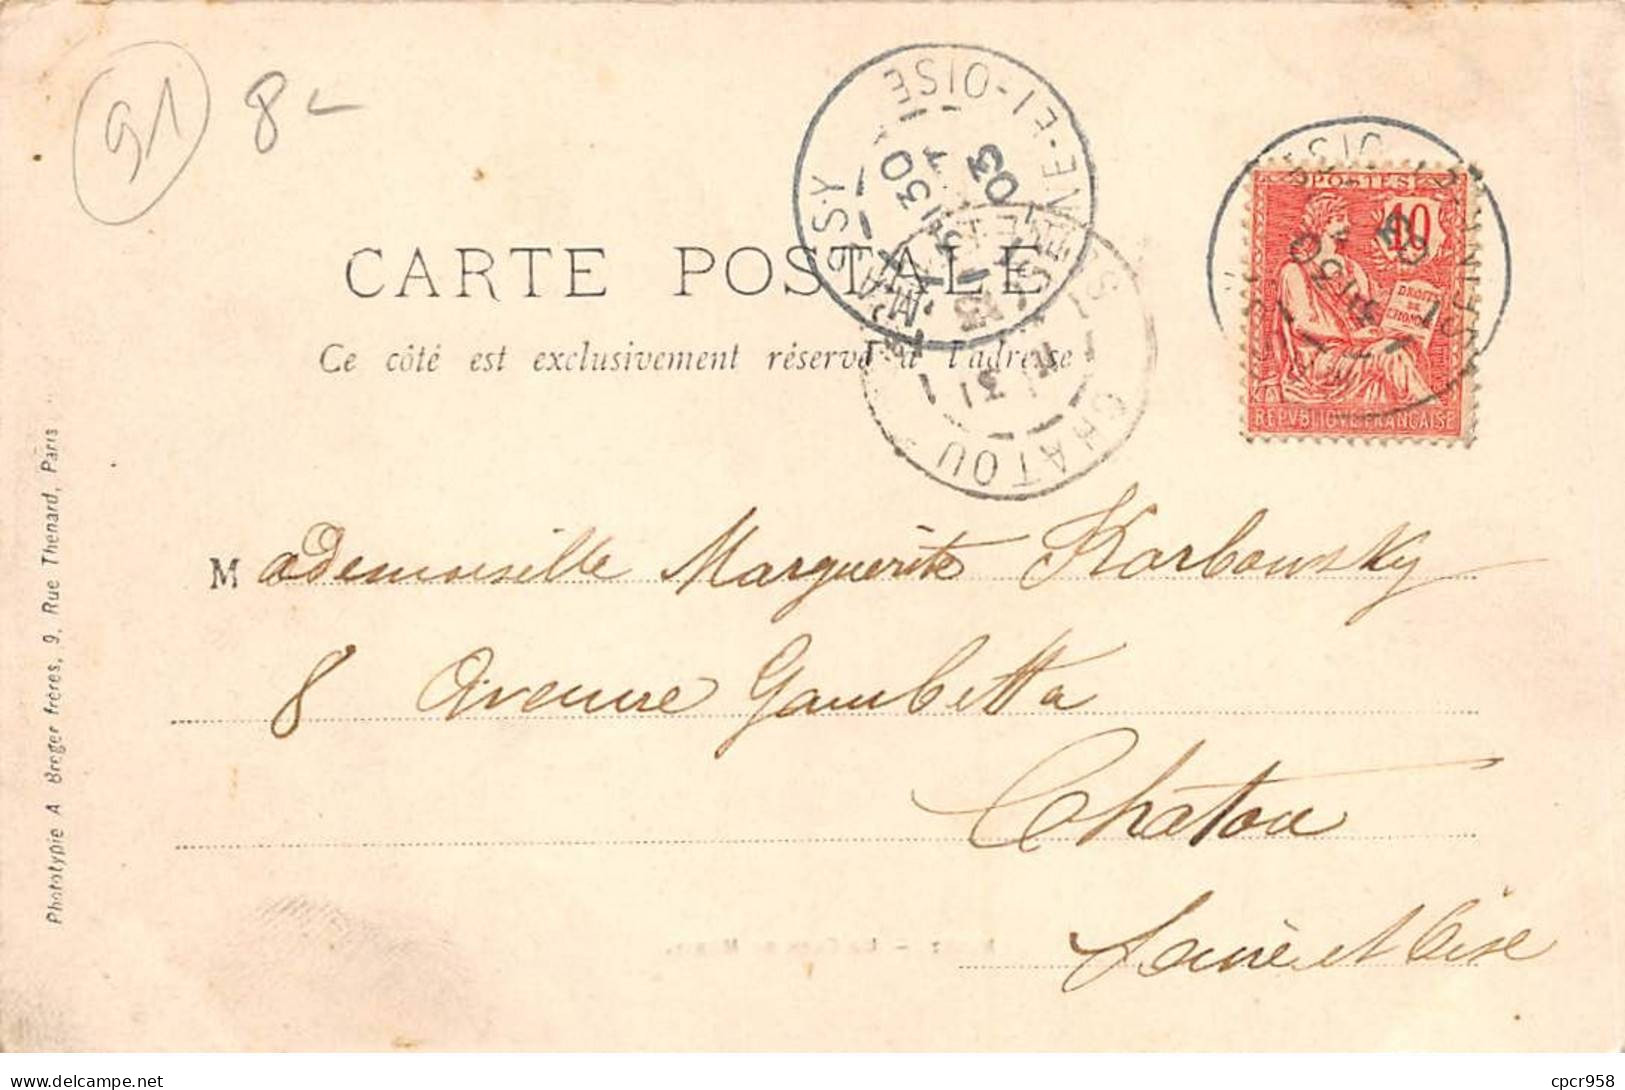 91 8-
CARTE POSTALE
Ce côté est exclusivement réservé à l'adresse
MASSY
SEINE-ET-OISE
30
03
CHATOU
31
POSTES
10
DROITS
DE
L'HOMME
REPVBLIQVE FRANÇAISE
Mademoiselle Marguerite Karbowsky
8 Avenue Gambetta
Chatou
Seine et Oise
Phototypie A Breger frères, 9, Rue Thenard, Paris
cpcr958